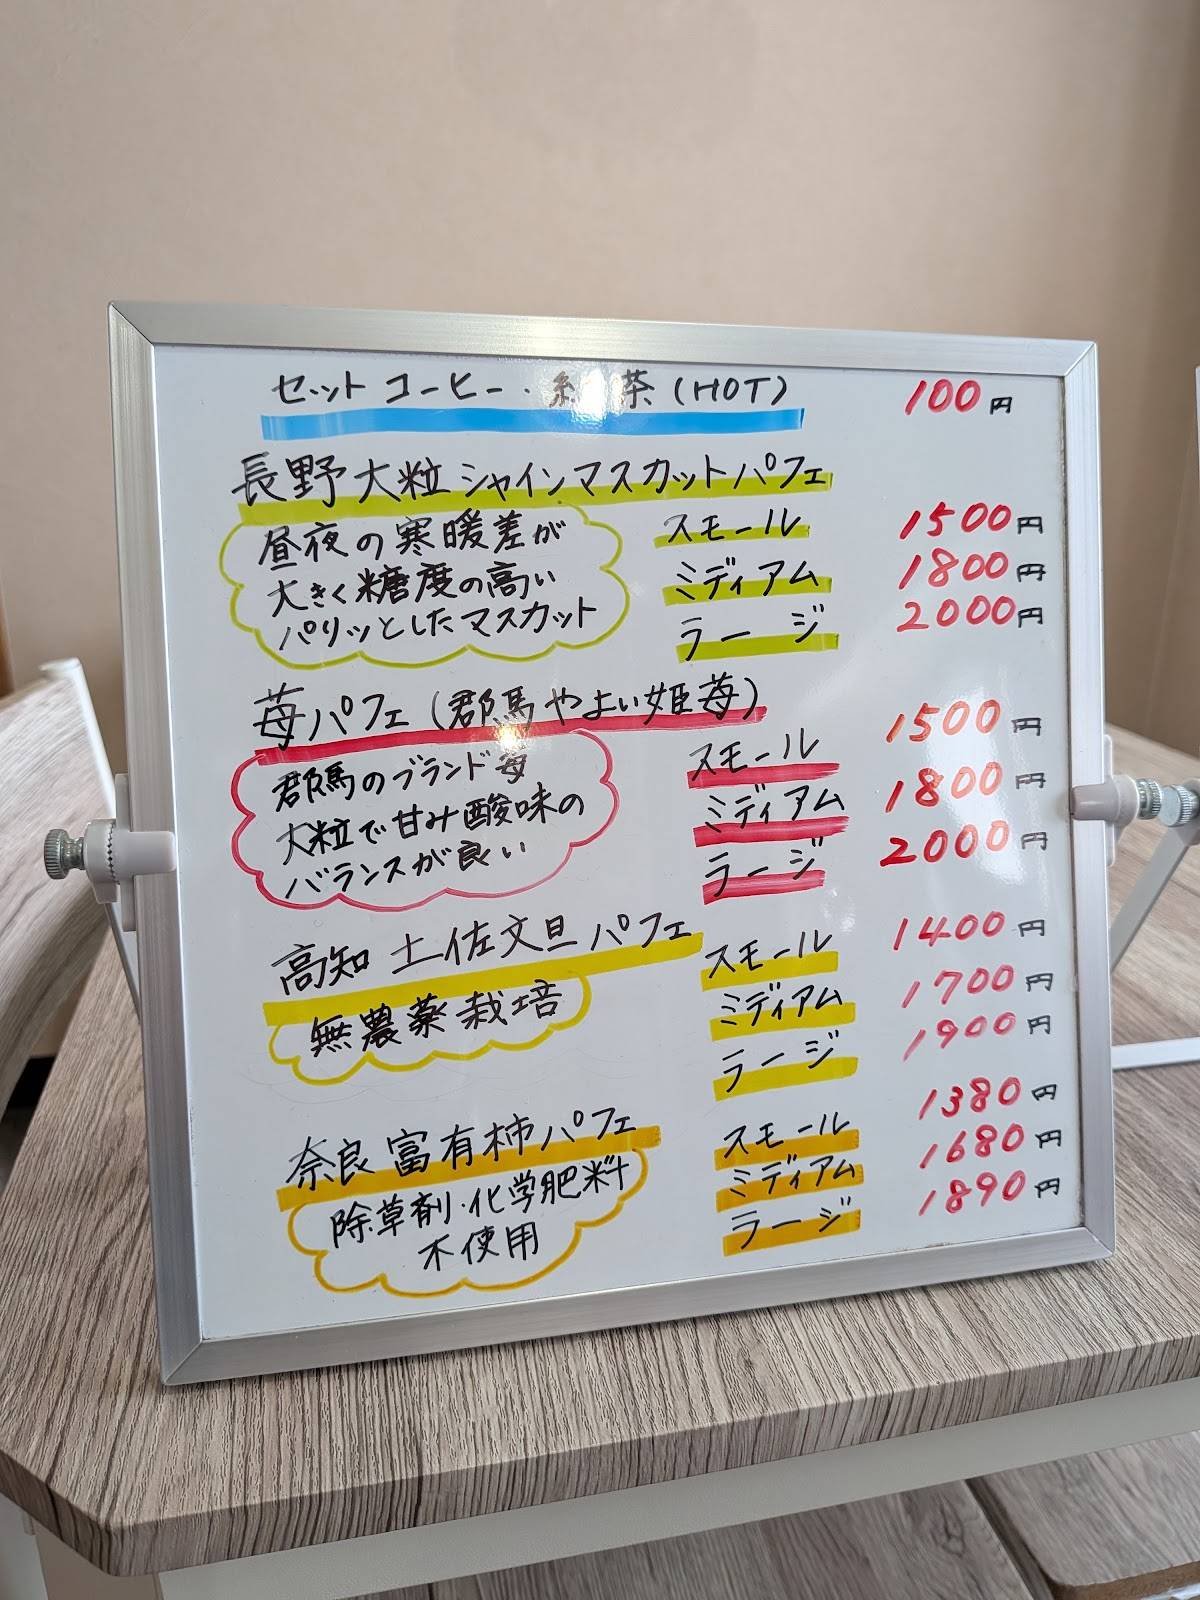 セット コーヒー・紅茶(HOT) 100円
長野大粒シャインマスカットパフェ
昼夜の寒暖差が
大きく糖度の高い
パリッとしたマスカット
スモール 1500円
ミディアム 1800円
ラージ 2000円
苺パフェ(群馬やよい姫苺)
群馬のブランド苺
大粒で甘み酸味の
バランスが良い
スモール 1500円
ミディアム 1800円
ラージ 2000円
高知 土佐文旦パフェ
無農薬栽培
スモール 1400円
ミディアム 1700円
ラージ 1900円
奈良富有柿パフェ
除草剤・化学肥料
不使用
スモール 1380円
ミディアム 1680円
ラージ 1890円